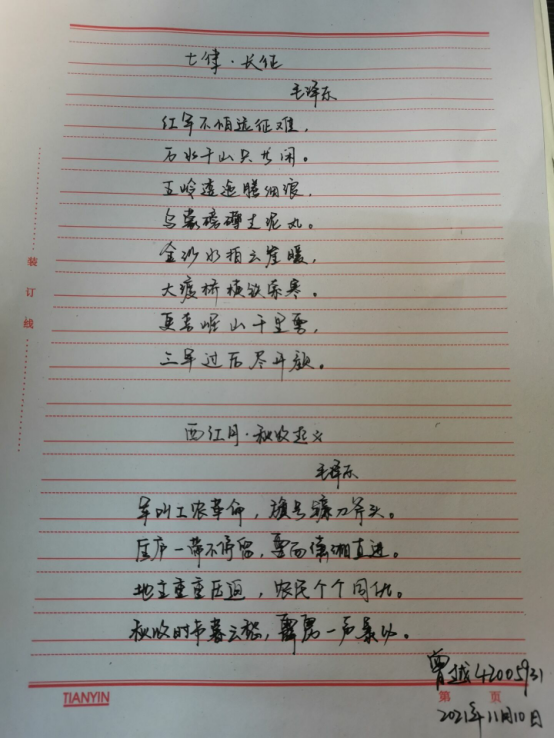 七律·长征
毛泽东
红军不怕远征难，
万水千山只等闲。
五岭逶迤腾细浪，
乌蒙磅礴走泥丸。
金沙水拍云崖暖，
大渡桥横铁索寒。
更喜岷山千里雪，
三军过后尽开颜。
西江月·秋收起义
毛泽东
军叫工农革命，旗号镰刀斧头。
匡庐一带不停留，要向潇湘直进。
地主重重压迫，农民个个同仇。
秋收时节暮云愁，霹雳一声暴动。
曾越42005931
2021年11月10日
装
订
线
TIANYIN
第 页